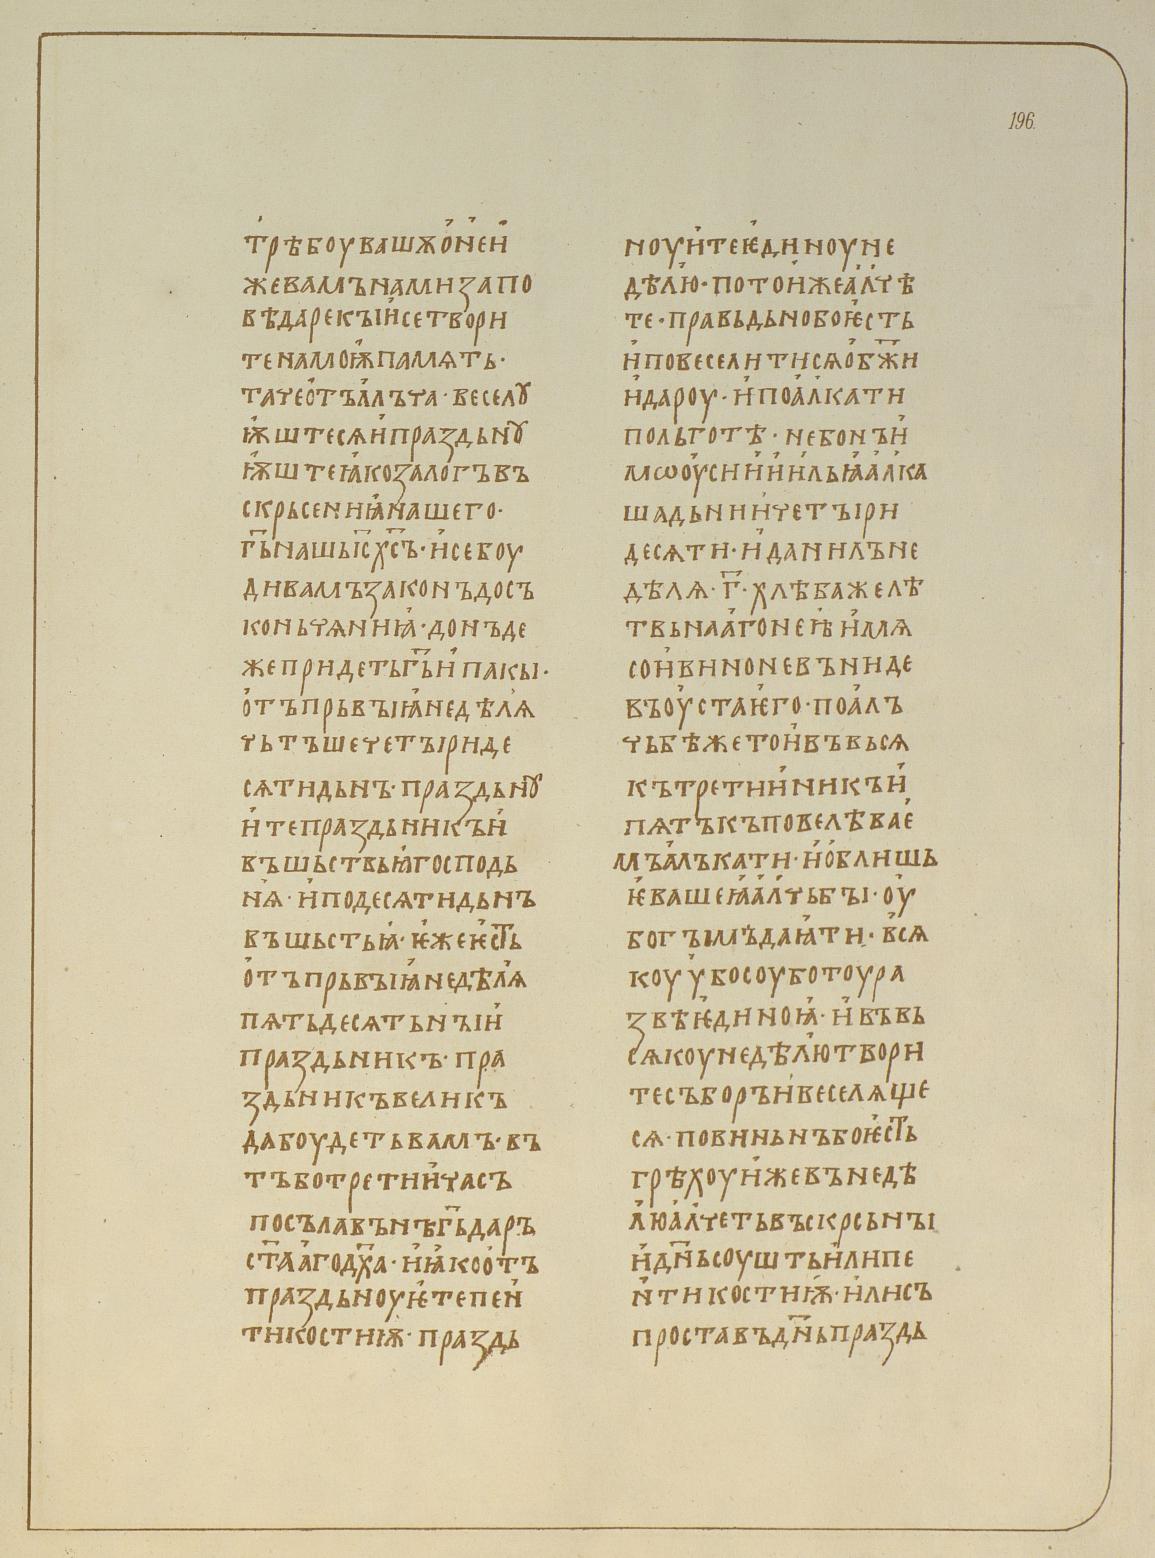 196.
трѣбоувашѫоней
жевамънамизапо
вѣдарекъıисетвори
тенамоıѫпамѧть·
тачеотълльча·веселꙋ
ıѫштесѧипраздьнꙋ
ıѫштеꙗкозалогъвъ
скрьсениꙗнашего·
г҃ьнашьı҃сх҃съ·исебоу
дивамъзаконъдосъ
коньчѧниꙗ·донъде
жепридетьг҃ьипакы·
отъпрьвъıꙗнедѣлѧ
чьтъшечетъıриде
сѧтидьнъ·праздьнꙋ
итепраздьникъи
въшьствьꙗгосподь
нѧ·иподесѧтидьнъ
въшьстьꙗ·ѥжеѥс҃ть
отъпрьвъıꙗнедѣлѧ
пѧтьдесѧтьнъıи
праздьникъ·пра
здьникъвеликъ
дабоудетьвамъ·въ
тъботретиичасъ
посълавънѣг҃ьдаръ
ст҃аагодх҃а·иꙗкоотъ
праздьноуѥтепен
тикостиıѫ·праздь
ноуитеѥдиноуне
дѣлю·потоижеалчѣ
те·правьдьнобоѥсть
иповеселитисѧобж҃и
идароу·ипоалкати
польготѣ·небонъи
мѡоусииииильꙗалка
шадьниичетъıри
десѧти·иданилъне
дѣлѧ·г҃·хлѣбажелѣ
твьнаагонеꙗ̈имѧ
соивинопевъниде
въоустаѥго·поалъ
чьбѣжетоивъвьсѧ
кътретииникъи
пѧтъкъповелѣвае
мъалъкати·иоблишь
ѥвашеꙗалчьбъı·оу
богъıмъдаꙗти·всѧ
коуубосоуботоура
звѣѥдиноꙗ·ивъвь
сѧкоунедѣлютвори
тесъборъивеселѧще
сѧ·повиньнъбоѥс҃ть
грѣхоуижевънедѣ
люалчетьвъскрсьнъı
идн҃ьсоуштьилипе
нтикостиıѫ·илисъ
проставъдн҃ьпраздь